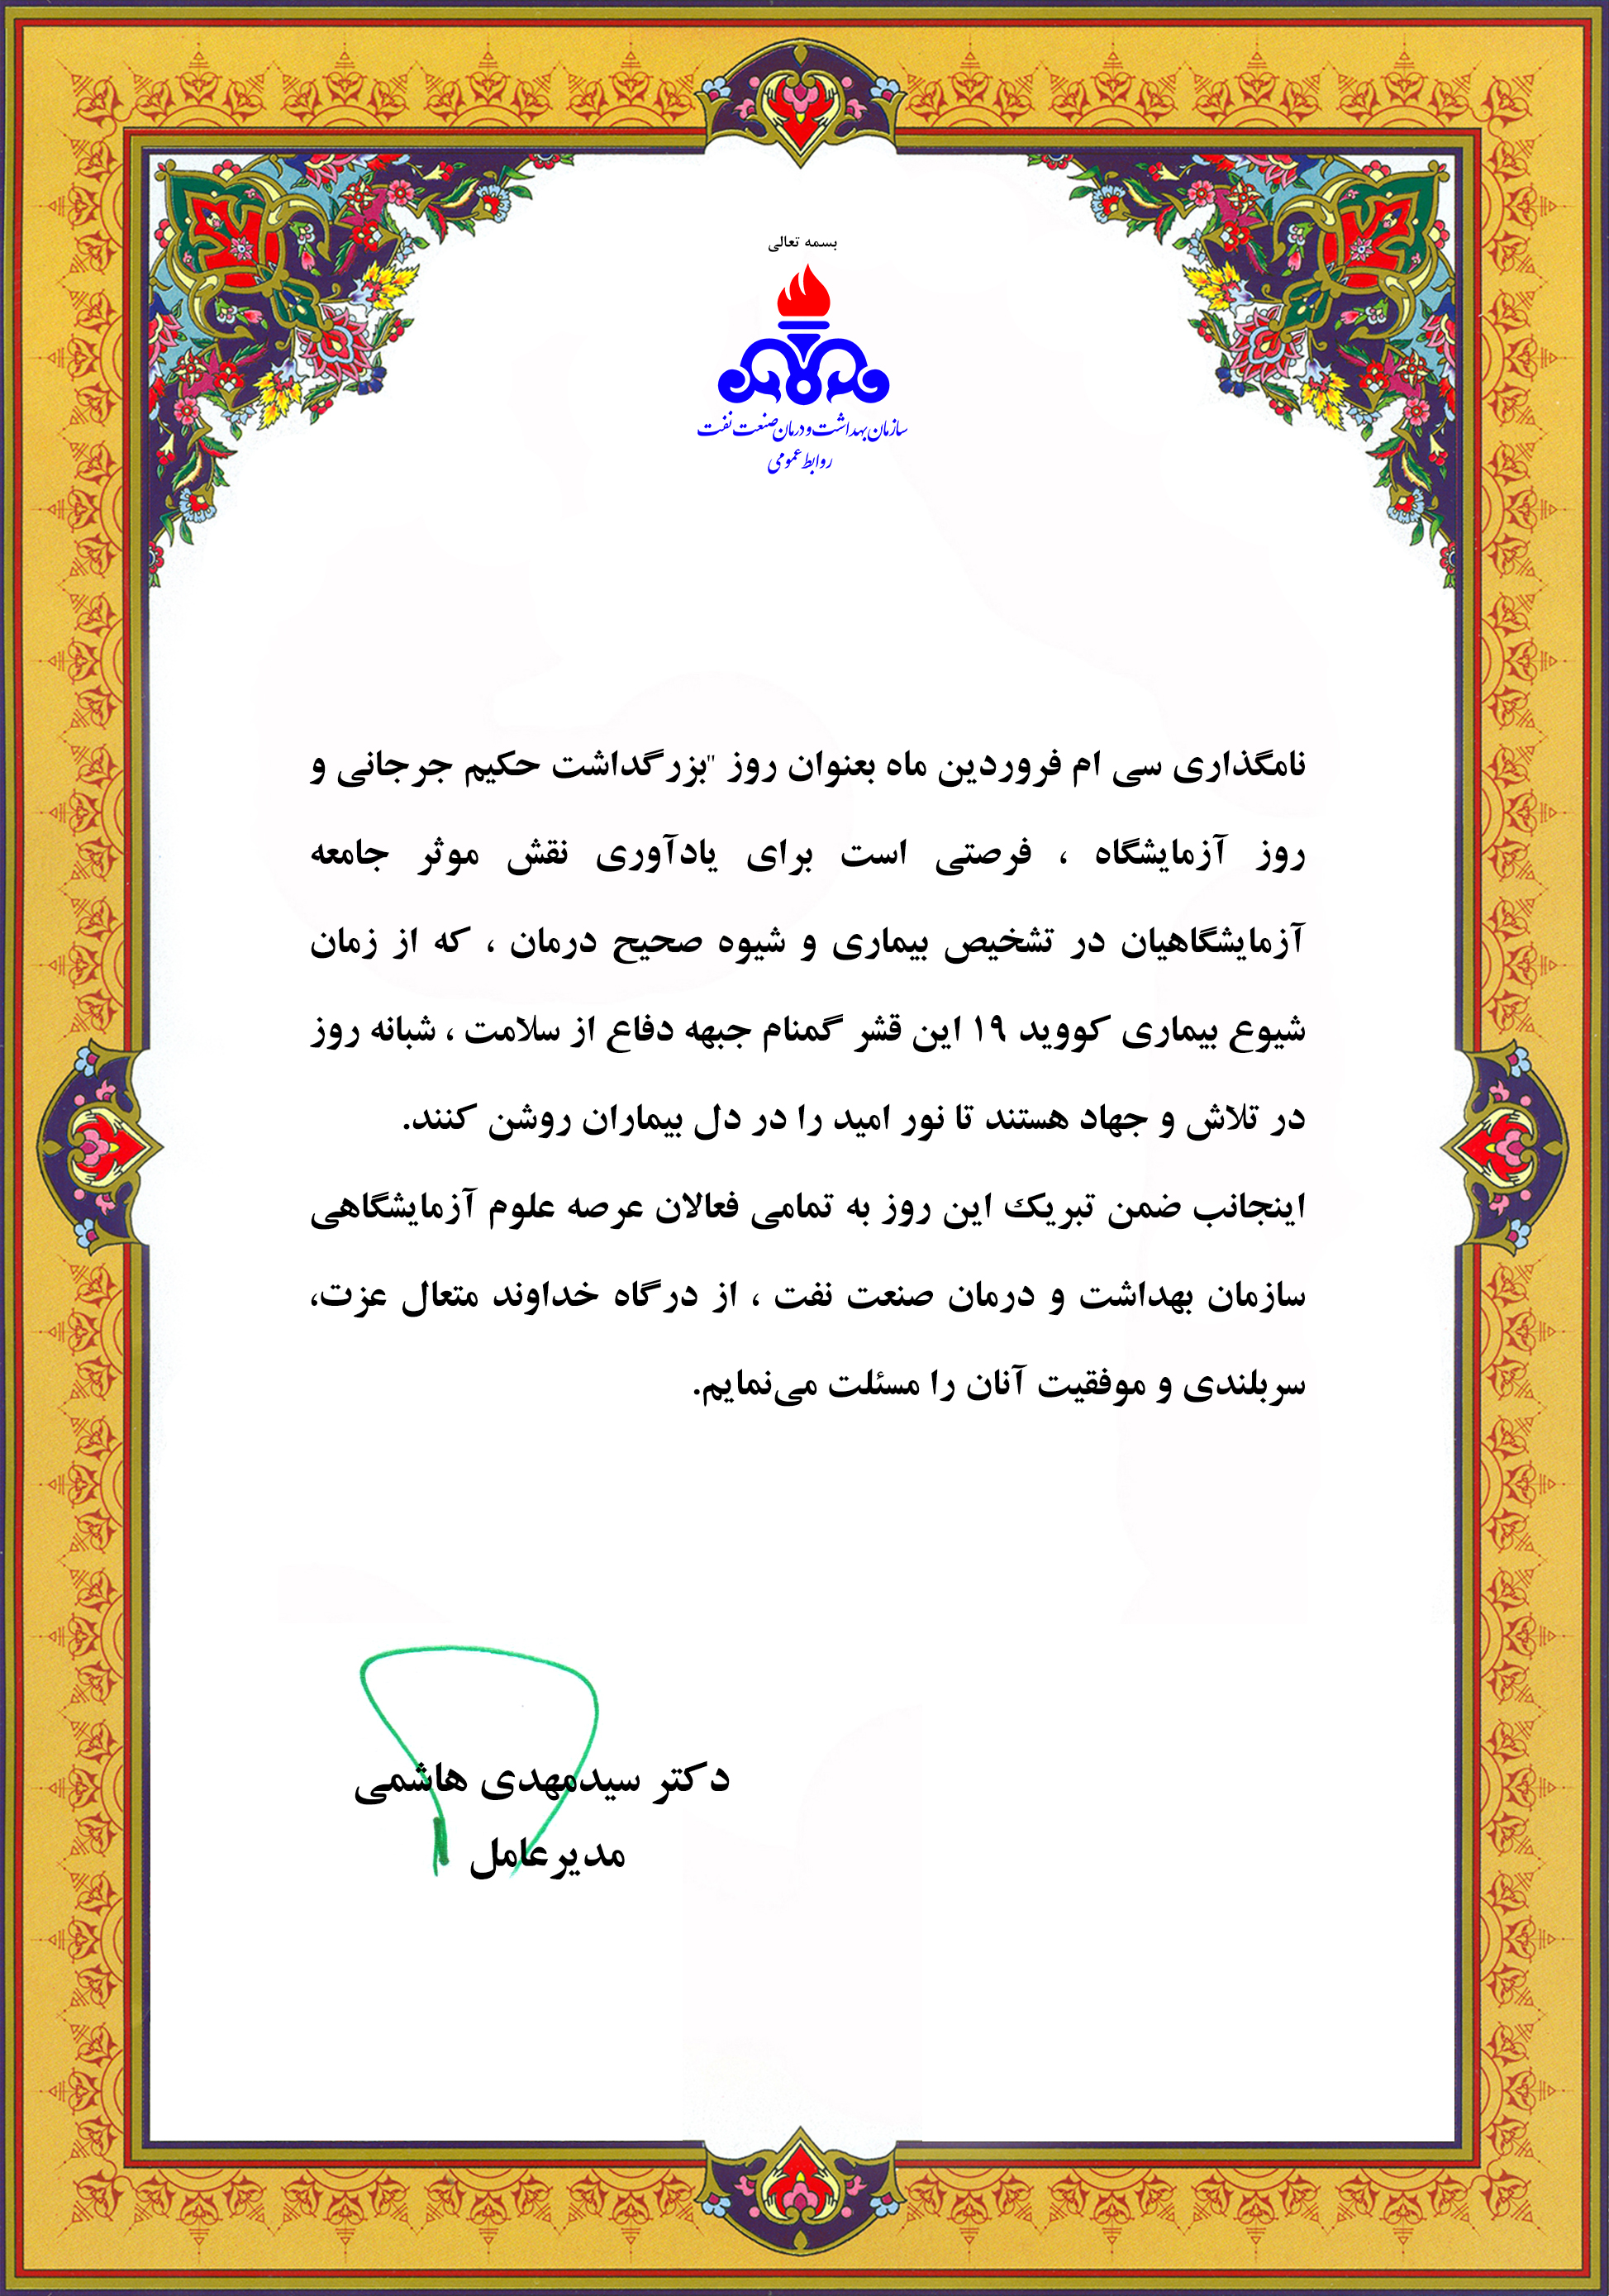 بسمه تعالی
سازمان بهداشت و درمان صنعت نفت
روابط عمومی
نامگذاری سی ام فروردین ماه بعنوان روز "بزرگداشت حکیم جرجانی و
روز آزمایشگاه ، فرصتی است برای یادآوری نقش موثر جامعه
آزمایشگاهیان در تشخیص بیماری و شیوه صحیح درمان ، که از زمان
شیوع بیماری کووید ۱۹ این قشر گمنام جبهه دفاع از سلامت ، شبانه روز
در تلاش و جهاد هستند تا نور امید را در دل بیماران روشن کنند.
اینجانب ضمن تبریک این روز به تمامی فعالان عرصه علوم آزمایشگاهی
سازمان بهداشت و درمان صنعت نفت ، از درگاه خداوند متعال عزت،
سربلندی و موفقیت آنان را مسئلت می‌نمایم.
دکتر سیدمهدی هاشمی
مدیرعامل